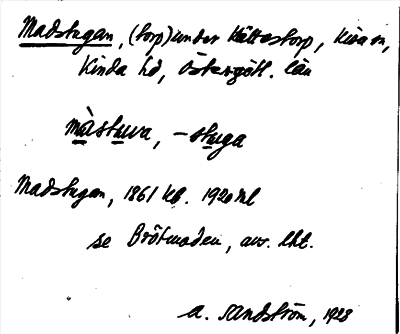 Madstugan, (torp) under Kättestorp, Kisa sn,
Kinda hd, Östergötl. län
màstuva, -stuga
Madstugan, 1861 kb. 1920 ml
se Brötmaden, avs. lht.
A. Sandström, 1928